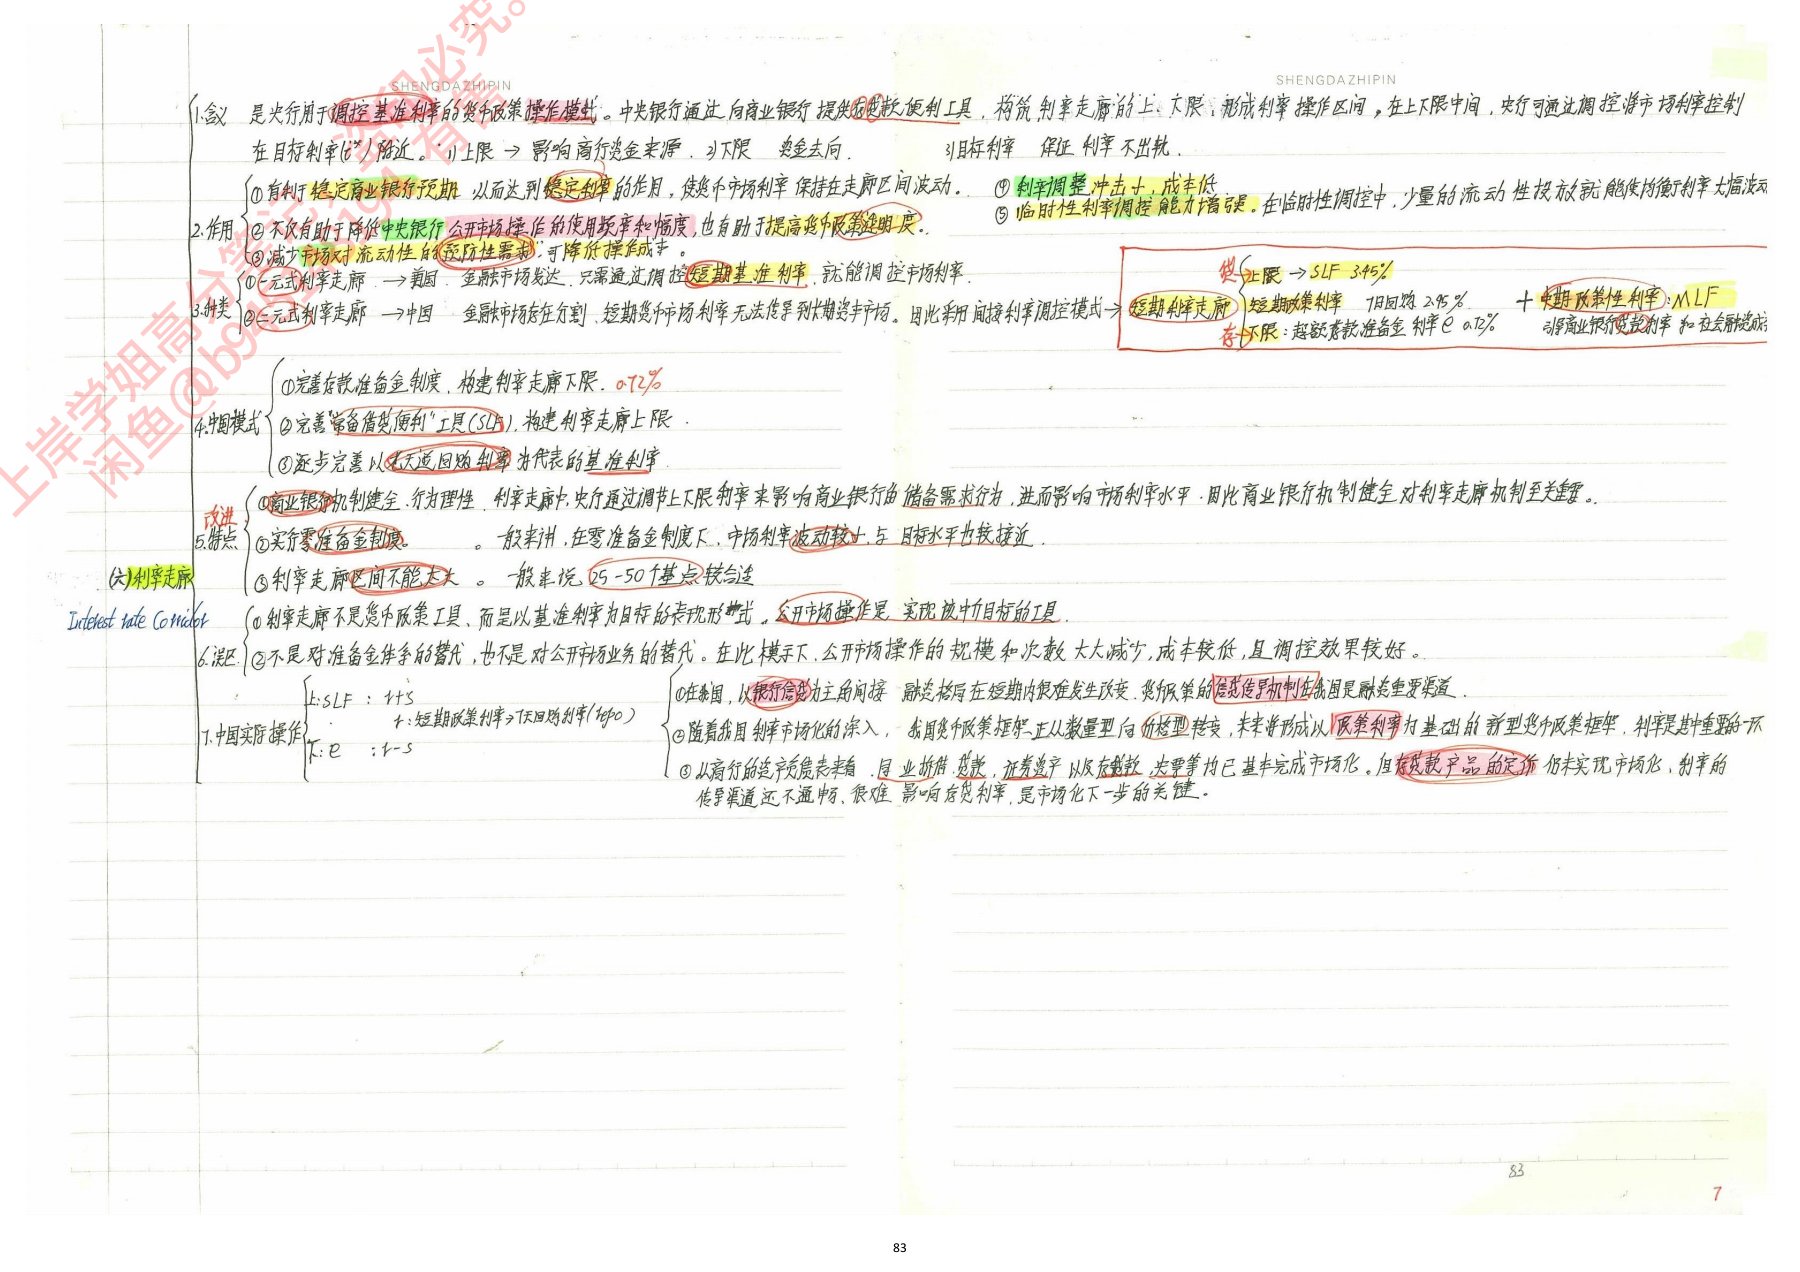 SHENGDAZHIPIN
SHENGDAZHIPIN
1.含义 是央行用于调控基准利率的货币政策操作模式。中央银行通过向商业银行提供存贷款便利工具，构筑利率走廊的上、下限，形成利率操作区间。在上下限中间，央行可通过调控将市场利率控制
在目标利率(i*)附近。 1)上限 → 影响商行资金来源. 2)下限 资金去向. 3)目标利率 保证利率不出轨.
2.作用
①有利于稳定商业银行预期 从而达到稳定利率的作用，使货币市场利率保持在走廊区间波动。
②不仅有助于降低中央银行公开市场操作的使用频率和幅度，也有助于提高货币政策透明度。
③减少市场对流动性的“预防性需求”，可降低操作成本。
④利率调整冲击小，成本低
⑤临时性利率调控能力增强。在临时性调控中，少量的流动性投放就能使均衡利率大幅波动
3.种类
①一元式利率走廊 →美国 金融市场发达，只需通过调控短期基准利率，就能调控市场利率.
②二元式利率走廊 →中国 金融市场存在分割、短期货币市场利率无法传导到长期资本市场。因此采用间接利率调控模式→
短期利率走廊
贷 上限 → SLF 3.45%
短期政策利率 7日回购 2.45%
存 下限：超额存款准备金利率 e 0.72%
+ 中期政策性利率：MLF
引导商业银行贷款利率和社会融资成
4.中国模式
①完善存款准备金制度，构建利率走廊下限. 0.72%
②完善“常备借贷便利”工具(SLF)，构建利率走廊上限.
③逐步完善以7天逆回购利率为代表的基准利率
改进
5.特点
①商业银行机制健全、行为理性. 利率走廊中，央行通过调节上下限利率来影响商业银行的储备需求行为，进而影响市场利率水平.因此商业银行机制健全对利率走廊机制至关重要。
②实行零准备金制度。 一般来讲，在零准备金制度下，市场利率波动较小，与目标水平也较接近.
③利率走廊区间不能太大。 一般来说 25-50个基点较合适
(六)利率走廊
Interest rate Corridor
6.误区
①利率走廊不是货币政策工具、而是以基准利率为目标的表现形式。公开市场操作是实现该中介目标的工具.
②不是对准备金体系的替代，也不是对公开市场业务的替代。在此模式下，公开市场操作的规模和次数大大减少，成本较低，且调控效果较好。
7.中国实际操作
上:SLF : r+s
r:短期政策利率→7天回购利率(repo)
下: e : r-s
①在我国，以银行信贷为主的间接融资格局在短期内很难发生改变.货币政策的信贷传导机制在我国是融资重要渠道.
②随着我国利率市场化的深入， 我国货币政策框架正从数量型向价格型转变，未来将形成以政策利率为基础的新型货币政策框架，利率是其中重要的一环
③从商行的资产负债表来看，同业拆借、贷款、证券资产以及存款、央票等均已基本完成市场化。但存贷款产品的定价仍未实现市场化、利率的
传导渠道还不通畅、很难影响存贷利率，是市场化下一步的关键。
上岸学姐高分笔记
闲鱼@b9
盗卖必究。
83
7
83